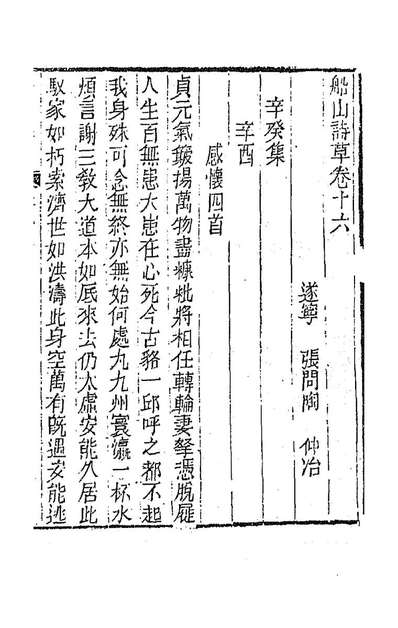 船山詩草卷十六
遂寧 張問陶 仲冶
辛癸集
辛酉
感懷四首
貞元氣鍛揚萬物盡糠枇將相任轉輪妻孥憑脫屣
人生百無患大患在心死今古貉一邱呼之都不起
我身殊可念無終亦無始何處九九州寰瀛一杯水
煩言謝三敎大道本如底來去仍太虛安能久居此
馭家如朽索濟世如洪濤此身空萬有旣遇安能逃